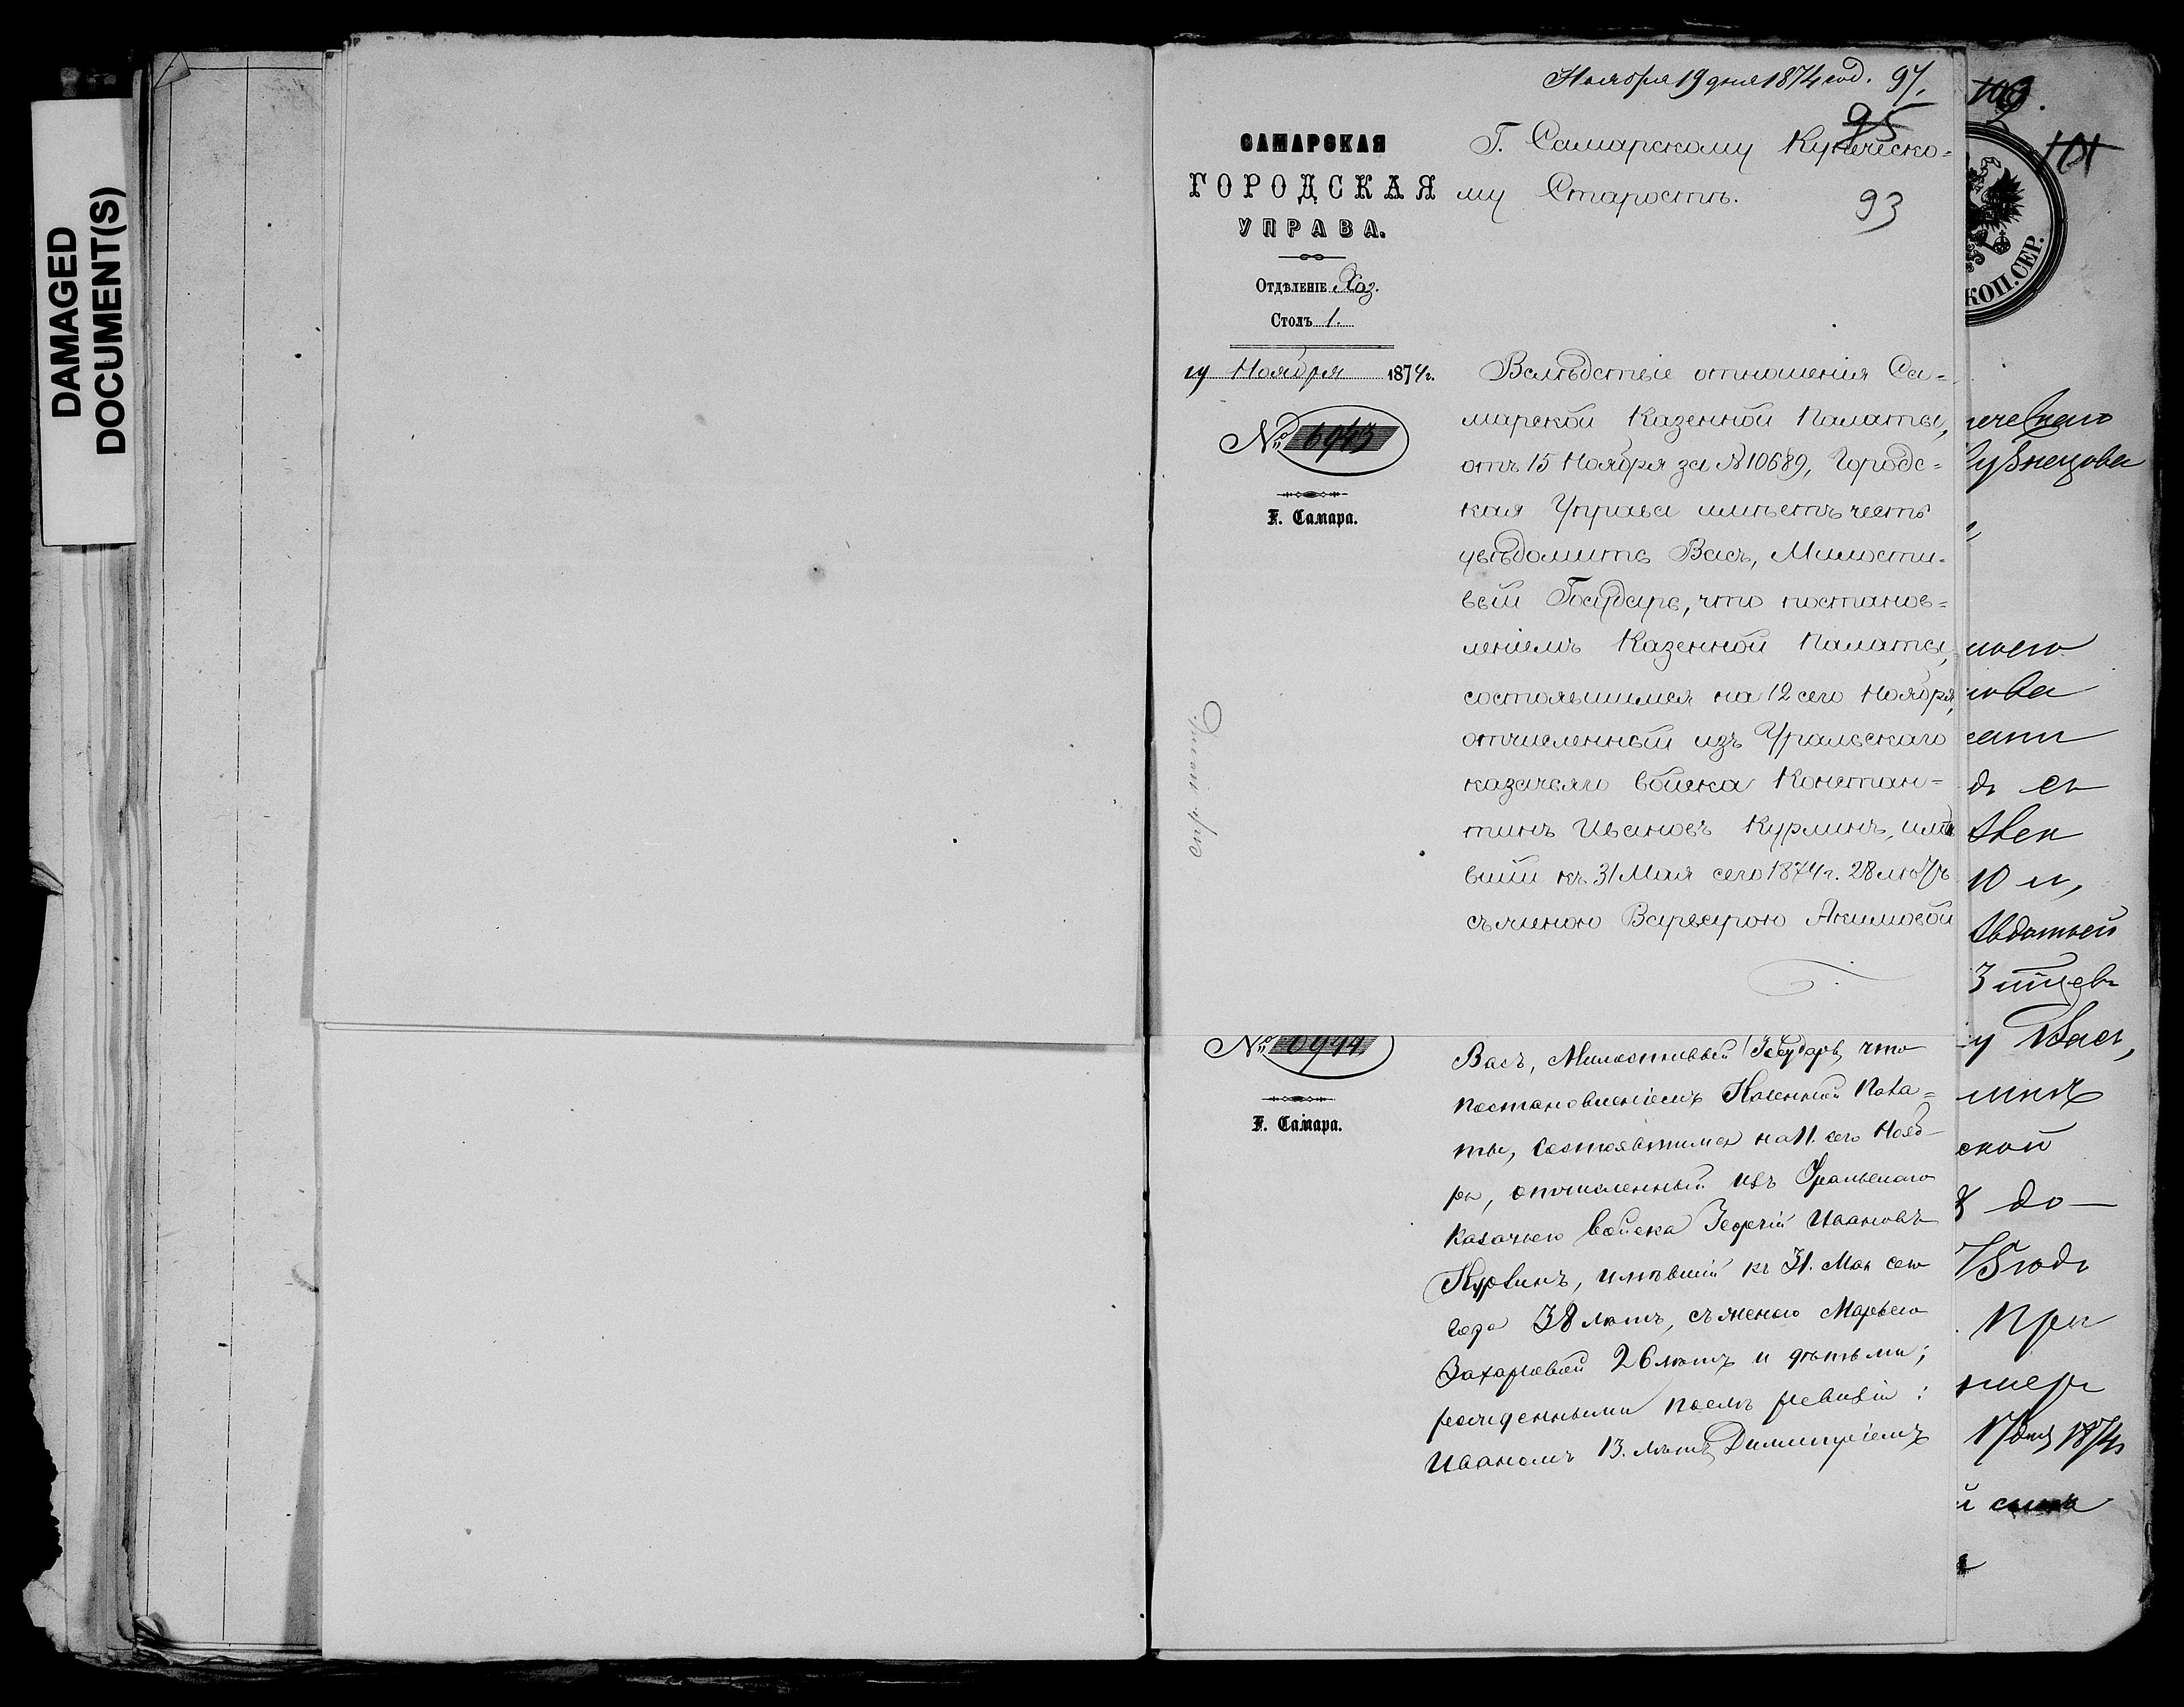 DAMAGED
DOCUMENT(S)
Ноября 19 дня 1874 год. 97.
95
93
САМАРСКАЯ
ГОРОДСКАЯ
УПРАВА.
Отдѣленіе Хоз.
Столъ 1.
19 Ноября 1874 г.
№ 6943
Г. Самара.
Г. Самарскому Купеческо=
му Старостѣ.
Вслѣдствіе отношенія Са=
марской Казенной Палаты,
отъ 15 Ноября за № 10689, Городс=
кая Управа имѣетъ честь
увѣдомить Васъ, Милости-
вый Государь, что постанов=
леніемъ Казенной Палаты,
состоявшимся на 12 сего Ноября,
отчисленный изъ Уральскаго
казачьяго войска Констан=
тинъ Ивановъ Курлинъ, имѣ
вшій къ 31 Мая сего 1874 г. 28 лѣтъ
съ женою Варварою Акимовой
№ 6944
Г. Самара.
Васъ, Милостивый Государь, что
постановленіемъ Казенной Пала=
ты, состоявшимся на 11. сего Нояб-
ря, отчисленный изъ Уральскаго
Казачьего войска Георгій Ивановъ
Курлинъ, имѣвшій къ 31. Мая сего
года 38 лѣтъ, съ женою Марьею
Захаровой 26 лѣтъ и дѣтьми;
рожденными послѣ ревизіи:
Иваномъ 13. лѣтъ, Димитріемъ
109.
101
КОП. СЕР.
узнецова
моего
нова
10 л,
Авдотьей
Васъ,
ской
до-
При
1874